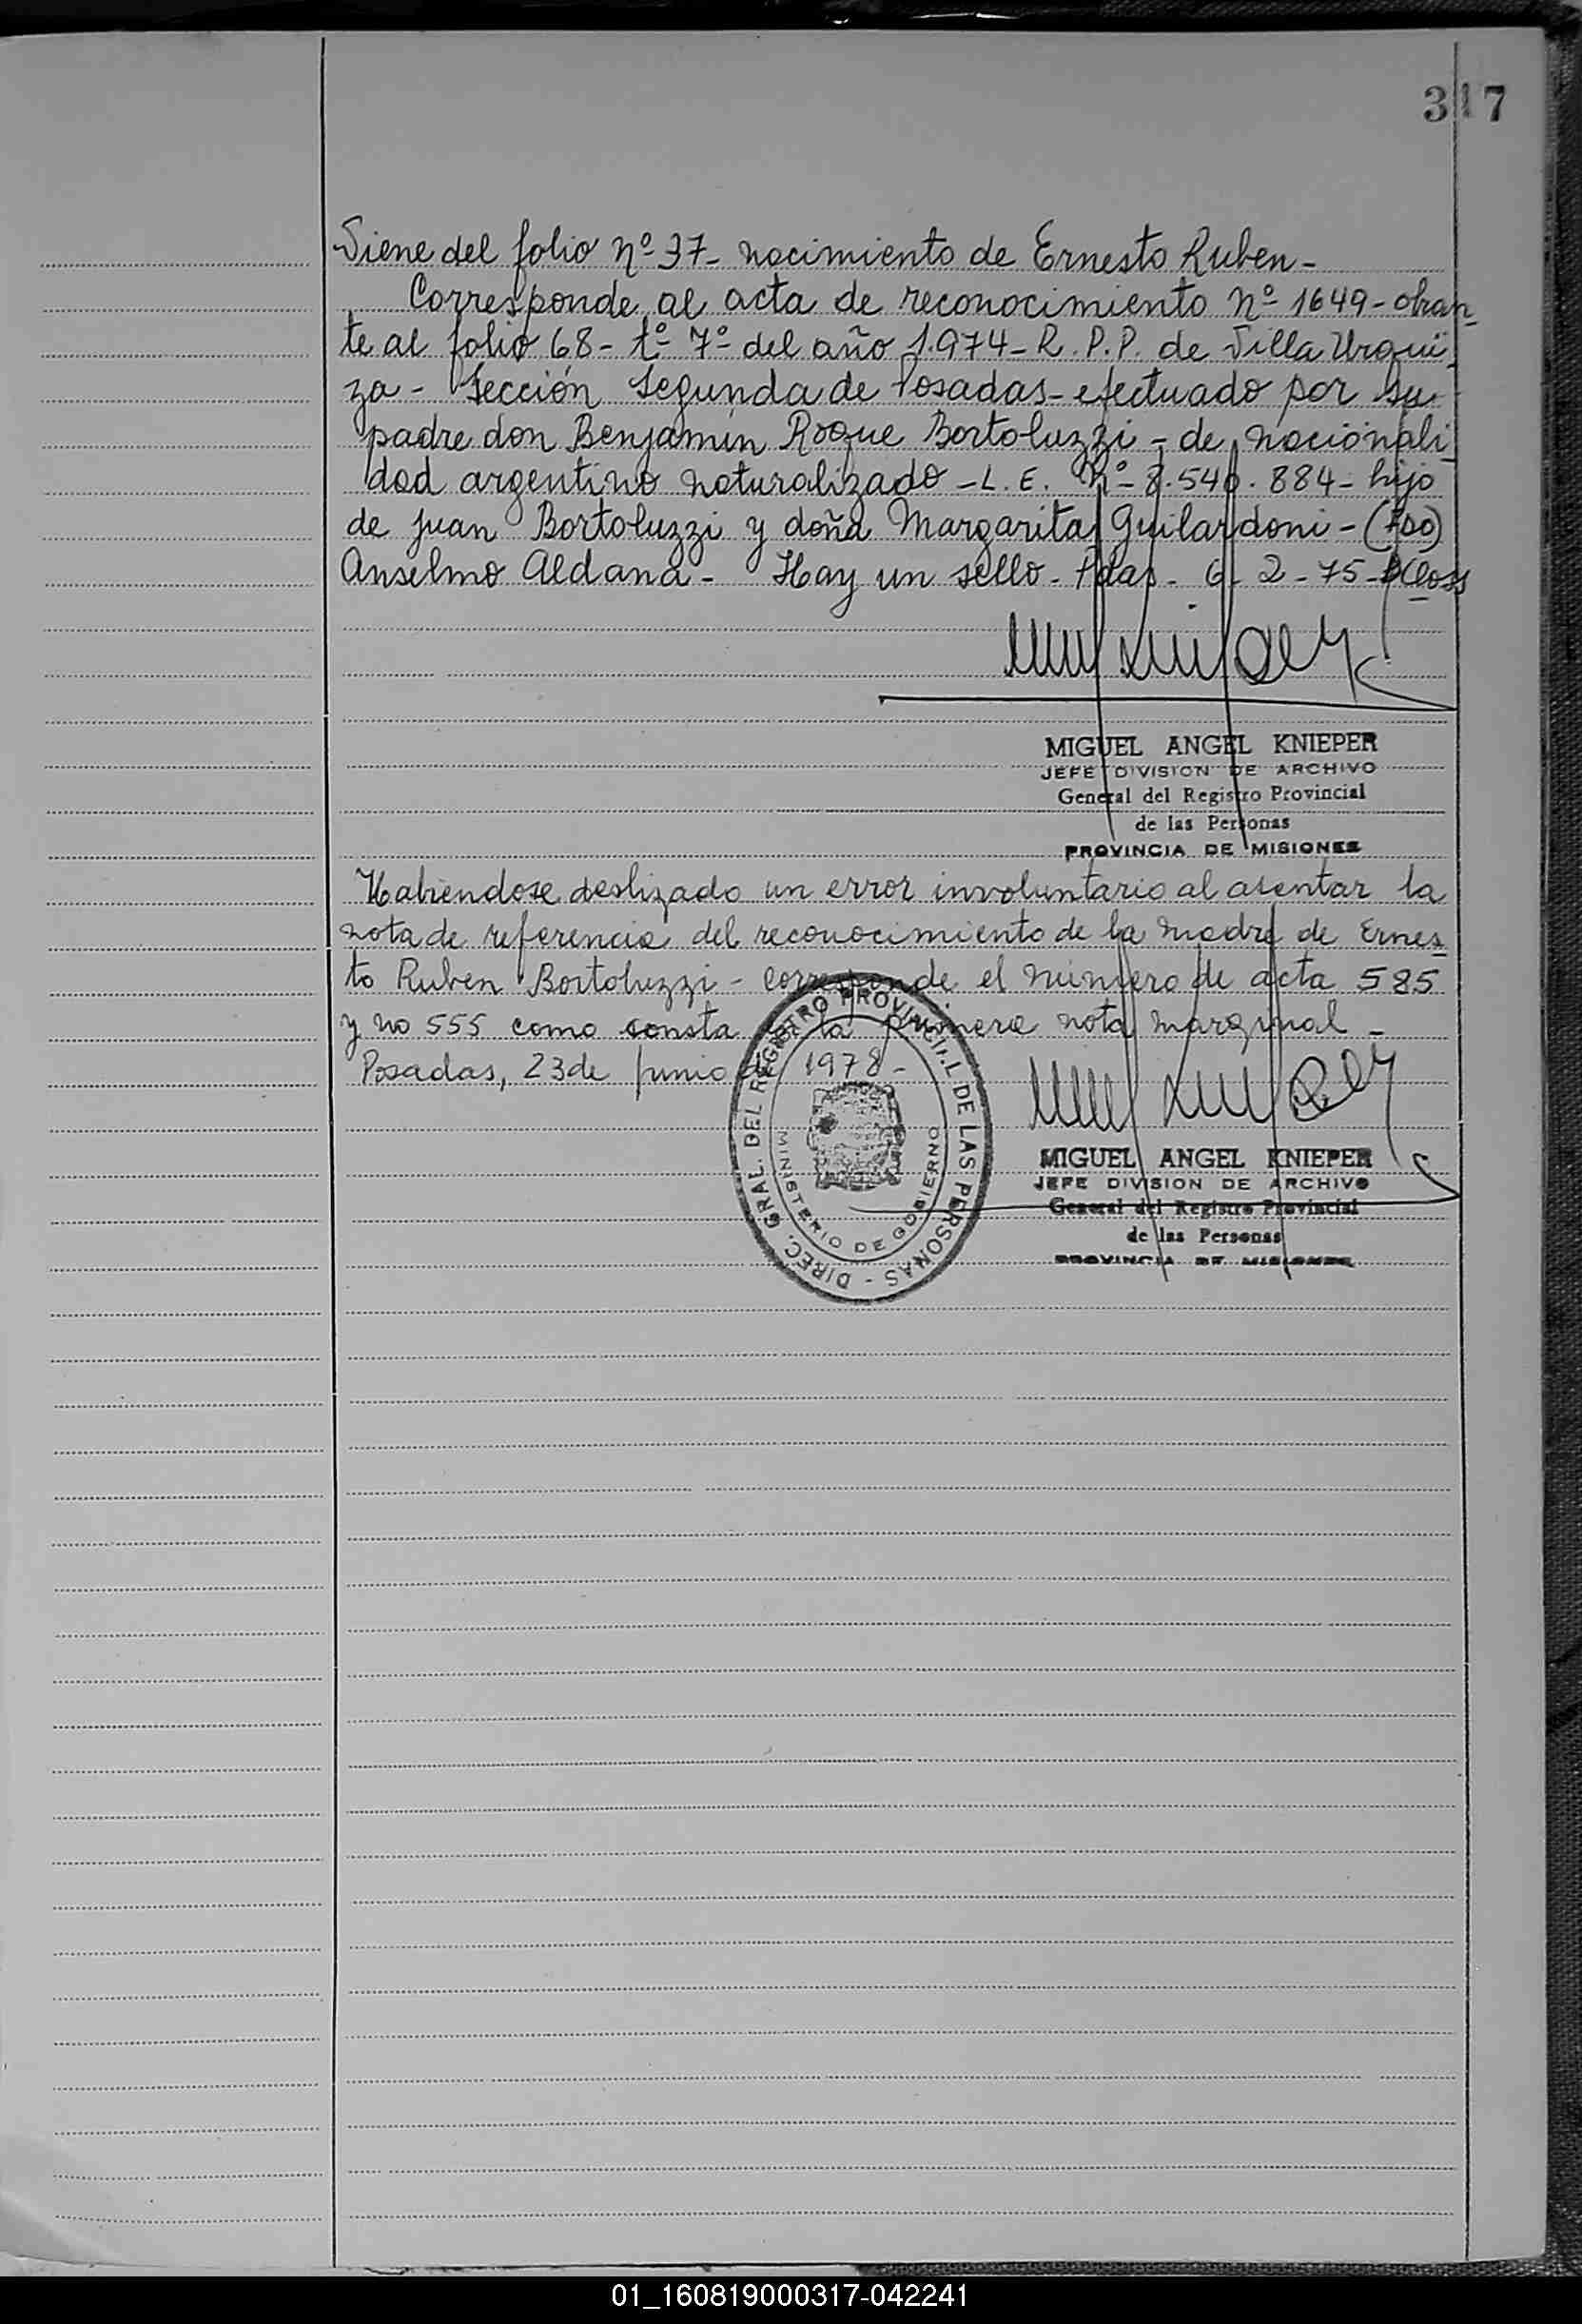 317
Viene del folio nº 37- nacimiento de Ernesto Ruben-
Corresponde al acta de reconocimiento nº 1649- obran
te al folio 68- tº 7º del año 1.974- R. P. P. de Villa Urqui
za- Sección Segunda de Posadas- efectuado por su
padre don Benjamin Roque Bortoluzzi- de nacionali
dad argentino naturalizado- L. E. Nº- 8.540.884- hijo
de Juan Bortoluzzi y doña Margarita Guilardoni- (Fdo)
Anselmo Aldana- Hay un sello- Pdas- 6- 2- 75-
MIGUEL ANGEL KNIEPER
JEFE DIVISION DE ARCHIVO
General del Registro Provincial
de las Personas
PROVINCIA DE MISIONES
Habiendose deslizado un error involuntario al asentar la
nota de referencia del reconocimiento de la madre de Ernes
to Ruben Bortoluzzi- corresponde el número de acta 585
y no 555 como consta en la primera nota marginal-
Posadas, 23 de junio de 1978-
DIREC. GRAL. DEL REGISTRO PROVINCIAL DE LAS PERSONAS -
MINISTERIO DE GOBIERNO
MIGUEL ANGEL KNIEPER
JEFE DIVISION DE ARCHIVO
General del Registro Provincial
de las Personas
PROVINCIA DE MISIONES
01_160819000317-042241